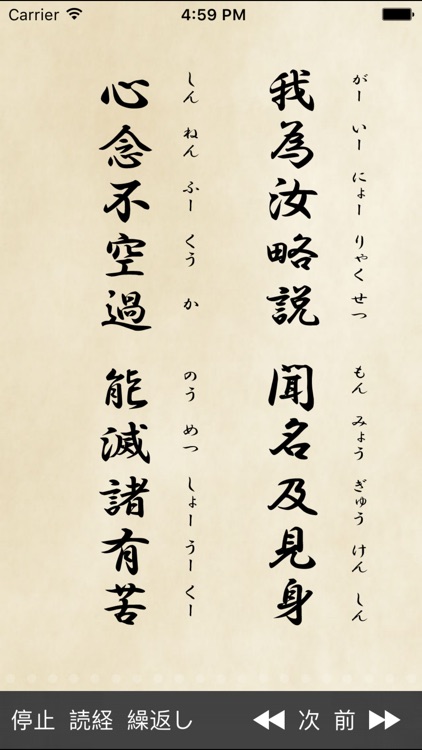 Carrier 4:59 PM
我為汝略説 聞名及見身
がー いー にょー りゃく せつ もん みょう ぎゅう けん しん
心念不空過 能滅諸有苦
しん ねん ふー くう か のう めつ しょー うー くー
停止 読経 繰返し 次 前